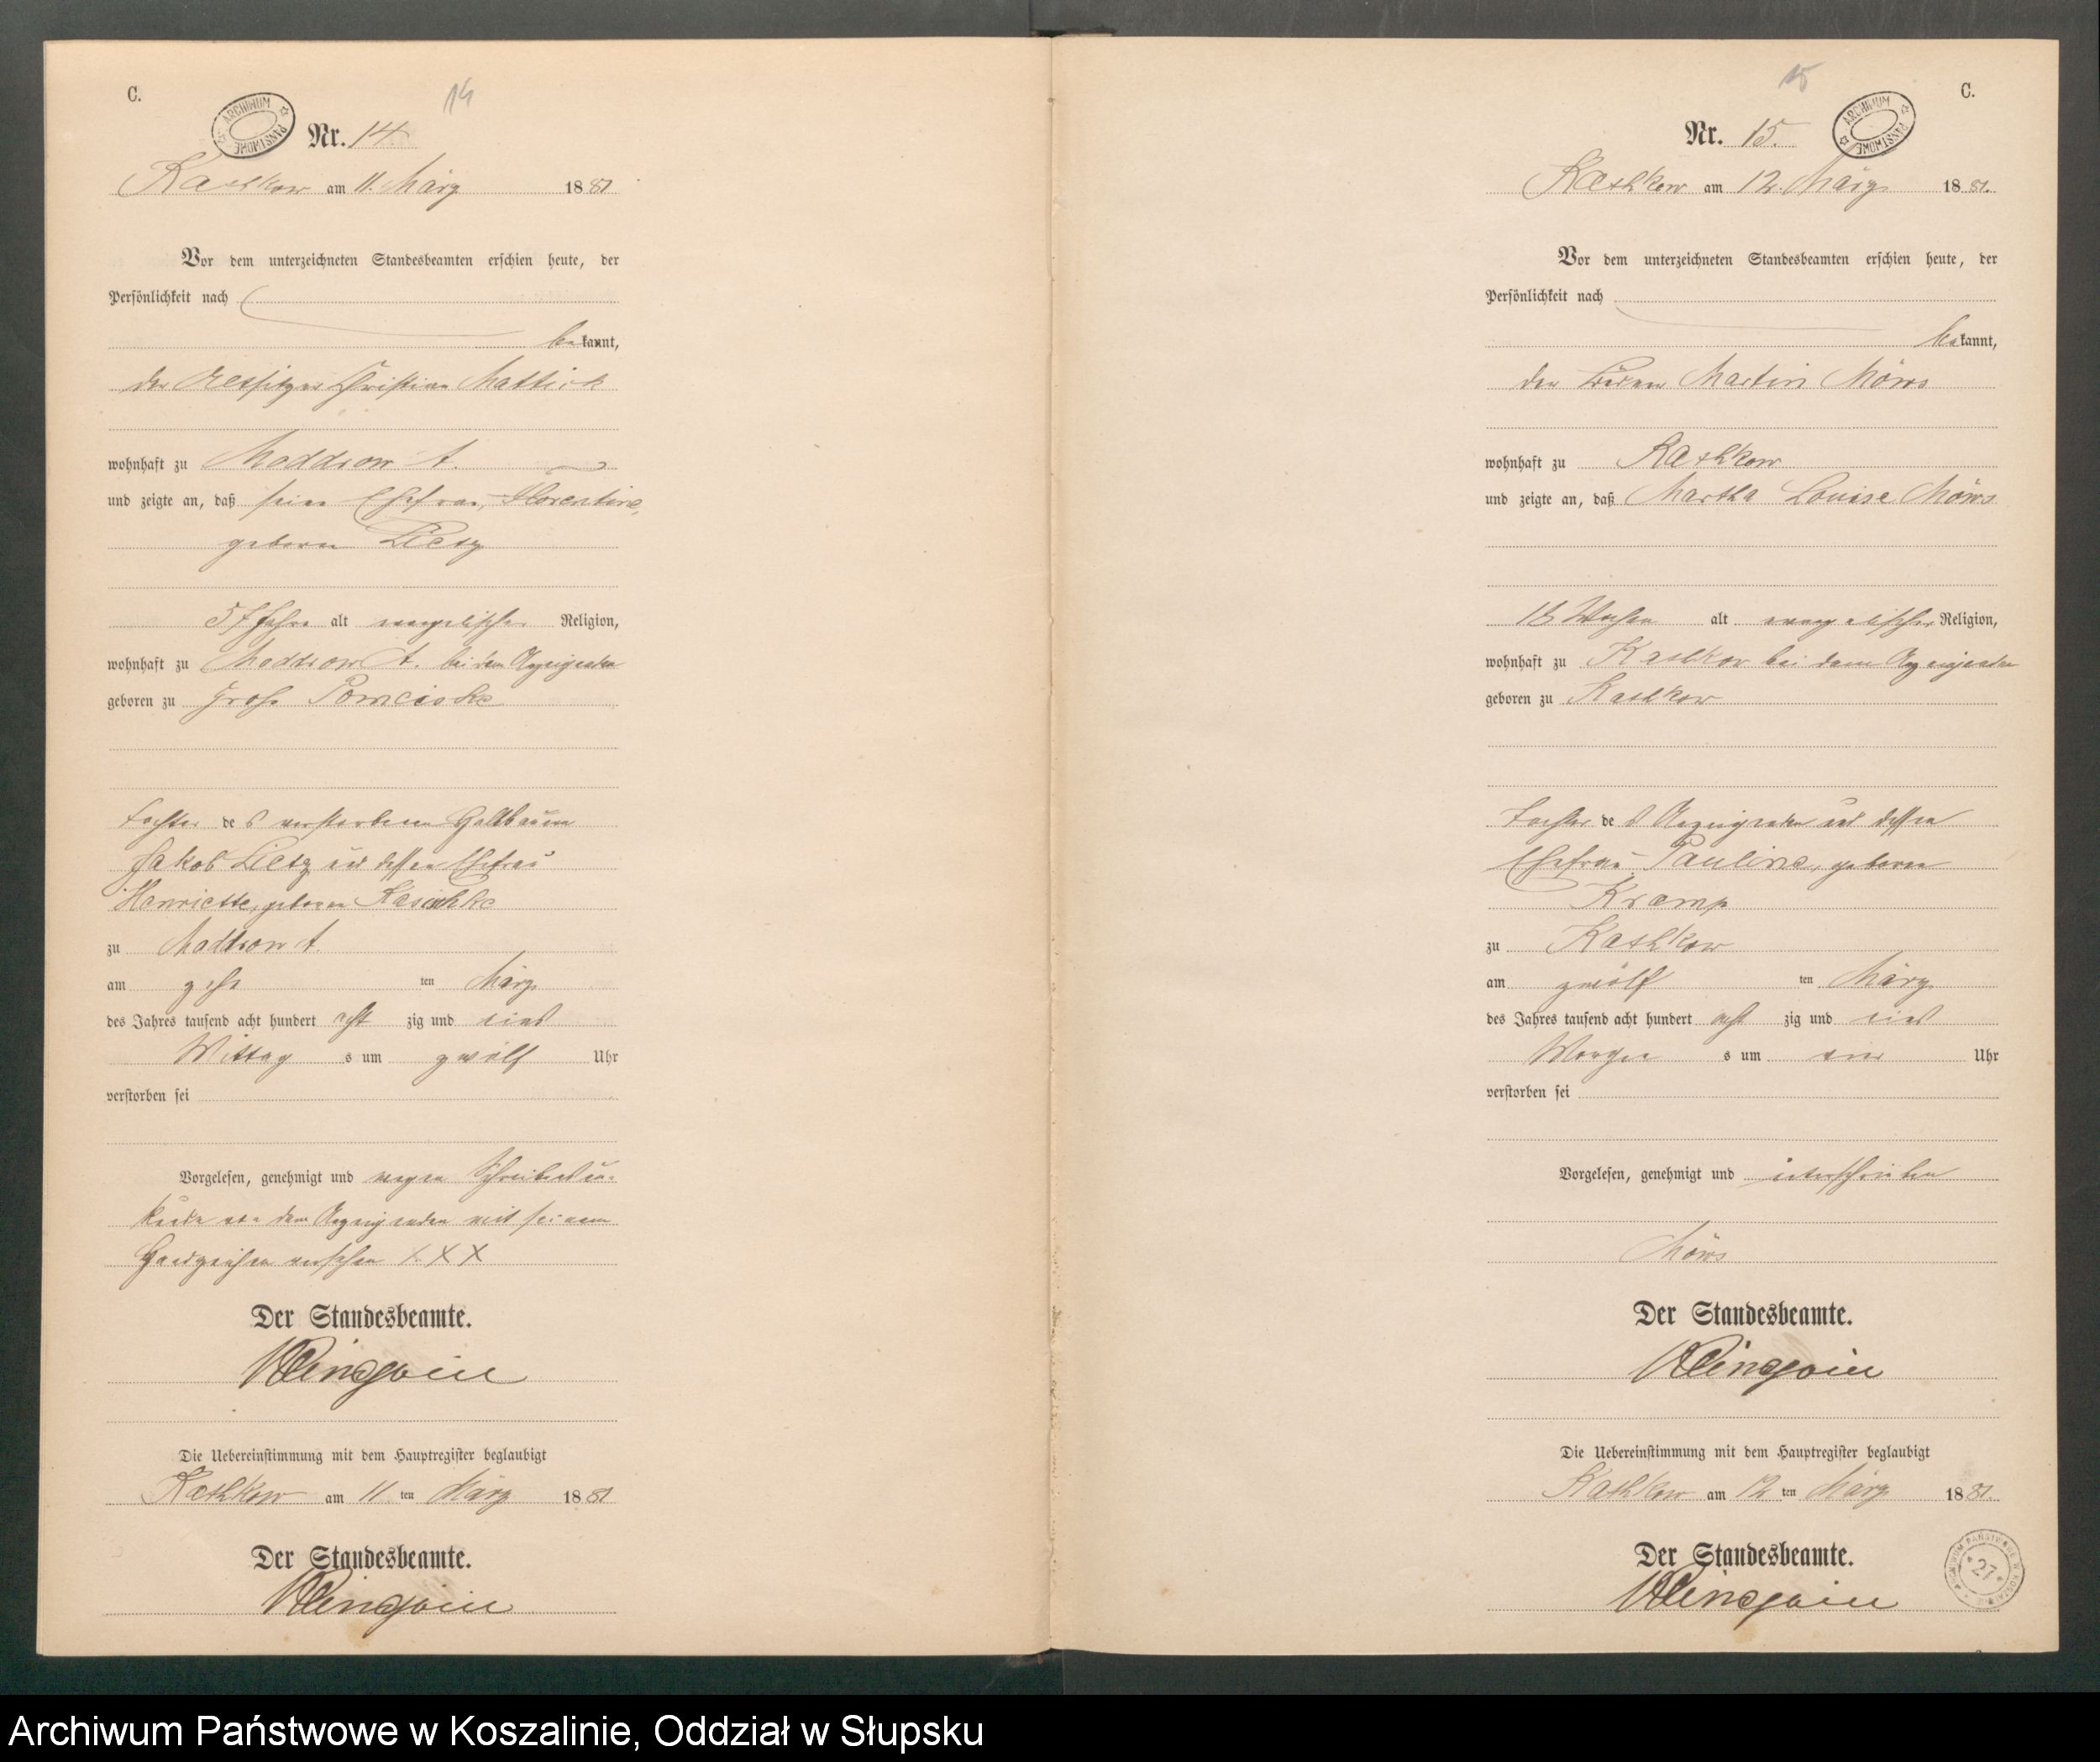 C.
14
Nr. 14.
ARCHIWUM PAŃSTWOWE
Kathkow am 11. März 1881
Vor dem unterzeichneten Standesbeamten erschien heute, der
Persönlichkeit nach
bekannt,
der Christian Mattick
wohnhaft zu Moddrow A.
und zeigte an, daß seine Ehefrau, Florentine,
geborene Lietz
Jahre alt evangelischer Religion,
wohnhaft zu Moddrow A. bei dem Anzeigenden
geboren zu Groß Pomeiske
Tochter des verstorbenen Halbbauern
Jakob Lietz und dessen Ehefrau
Henriette, geborene
zu Moddrow A.
am zehn ten März
des Jahres tausend acht hundert acht zig und eins
Mittag s um zwölf Uhr
verstorben sei
Vorgelesen, genehmigt und wegen Schreibensun-
kunde von dem Anzeigenden mit seinem
Handzeichen versehen XXX
Der Standesbeamte.
Die Uebereinstimmung mit dem Hauptregister beglaubigt
Kathkow am 11 ten März 1881
Der Standesbeamte.
15
C.
Nr. 15.
ARCHIWUM PAŃSTWOWE
Kathkow am 12. März 1881.
Vor dem unterzeichneten Standesbeamten erschien heute, der
Persönlichkeit nach
bekannt,
der Bauer Martin Möws
wohnhaft zu Kathkow
und zeigte an, daß Martha Louise Möws
Wochen alt evangelischer Religion,
wohnhaft zu Kathkow bei dem Anzeigenden
geboren zu Kathkow
Tochter des Anzeigenden und dessen
Ehefrau Pauline, geborene
Kramp
zu Kathkow
am zwölf ten März
des Jahres tausend acht hundert acht zig und eins
Morgen s um Uhr
verstorben sei
Vorgelesen, genehmigt und unterschrieben
Möws
Der Standesbeamte.
Die Uebereinstimmung mit dem Hauptregister beglaubigt
Kathkow am 12 ten März 1881.
Der Standesbeamte.
27
Archiwum Państwowe w Koszalinie, Oddział w Słupsku